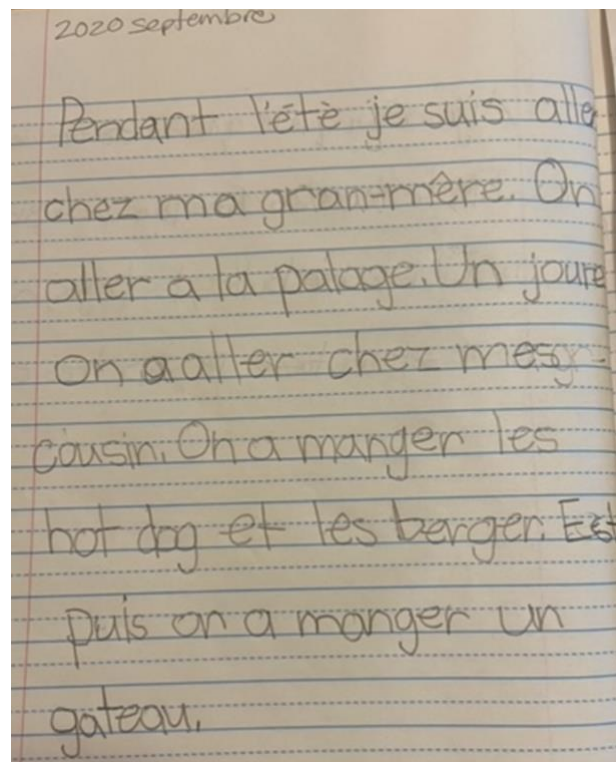 2020 septembre
Pendant l'étè je suis aller
chez ma gran-mère. On
aller a la palage. Un joure
on a aller chez mes
cousin. On a manger les
hot dog et les berger. Est
puis on a manger un
gateau.